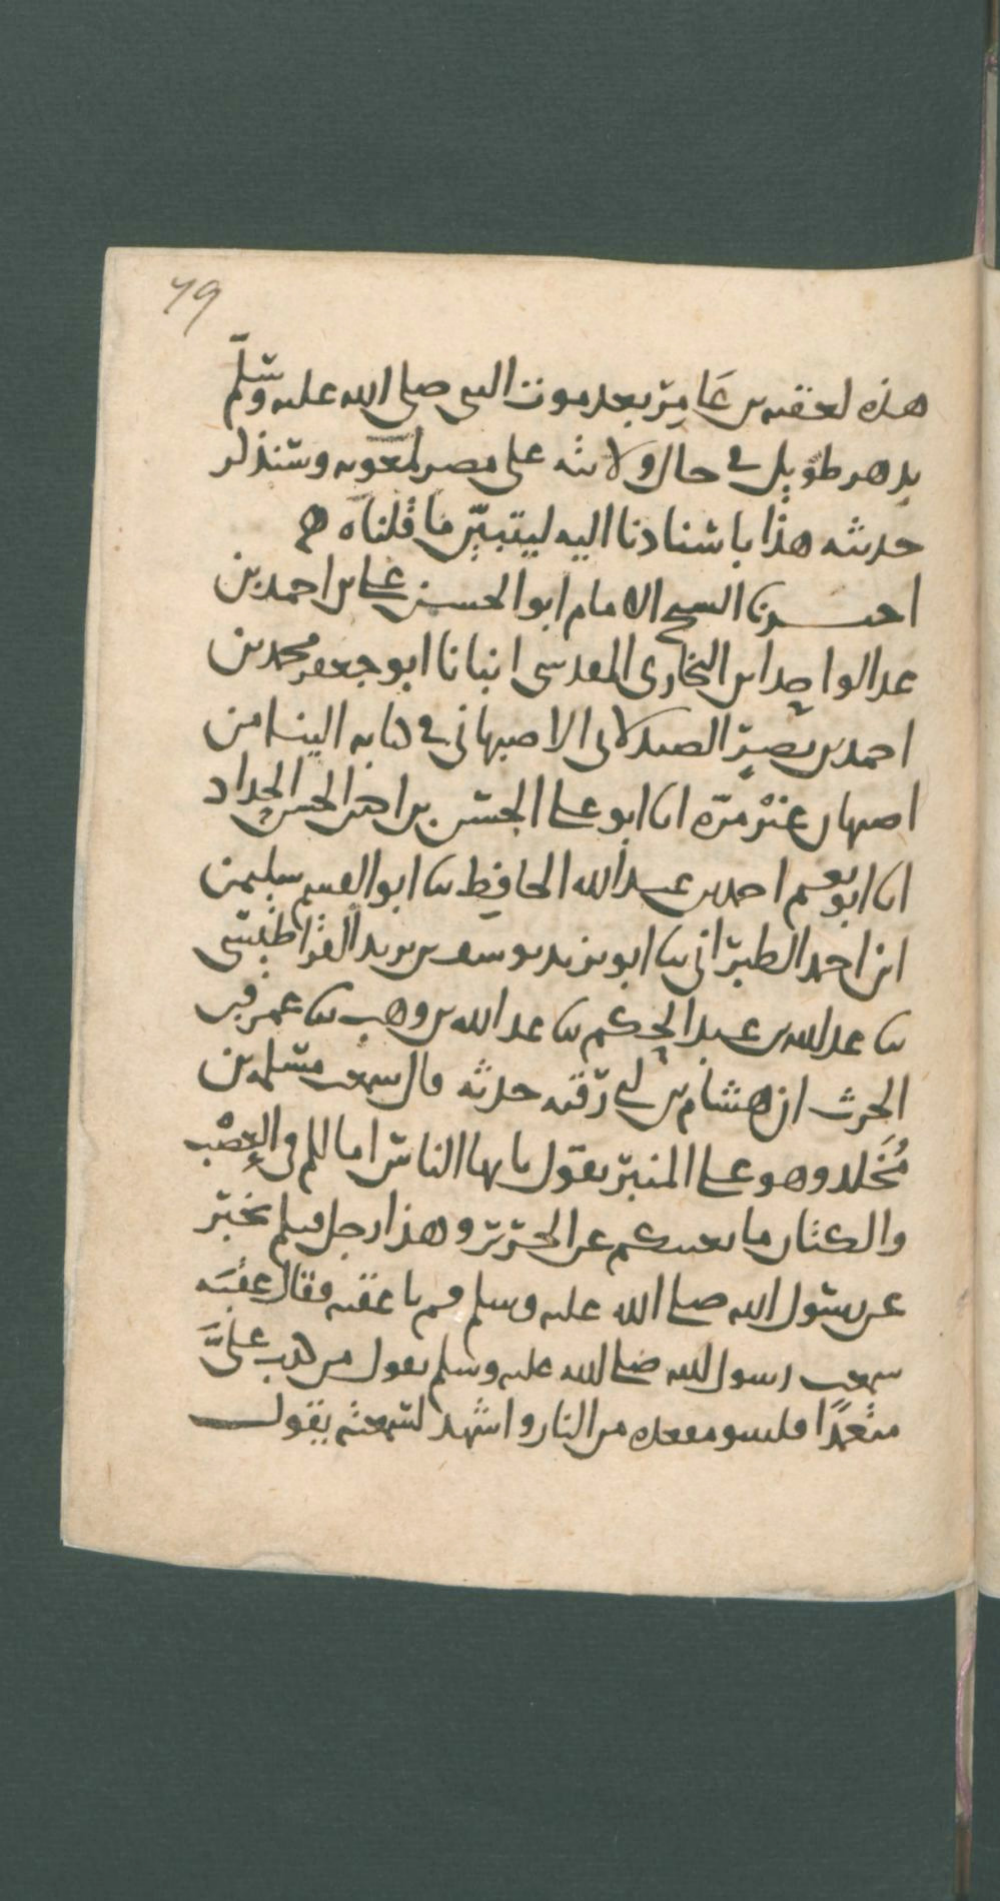 79
هذه لعقبه بن عَامِر بعد موت النبى صلى الله عليه وسَلَّم
بدهر طويل فى حال ولايته على مصر لمعوية وسنذكر
حديثه هذا باسنادنا اليه ليتبيّن ما قلناه ه
اخبرنا الشيخ الامام ابو الحسن على بن احمد بن
عبد الواحد ابن البخارى المقدسى انبانا ابو جعفر محمد بن
احمد بن نصر الصيدلانى الاصبهانى فى كتابه الينا من
اصبهان غير مرّه انا ابو على الحسن بن احمد بن الحسن الحداد
انا ابو نعيم احمد بن عبد الله الحافظ ثنا ابو القسم سليمن
ابن احمد الطبرانى ثنا ابو يزيد يوسف بن يزيد القراطيسى
ثنا عبد الله بن عبد الحكم ثنا عبد الله بن وهب ثنا عمرو بن
الحرث ان هشام بن ابى رقيه حدثه قال سمعت مسلمه بن
مُخَلد وهو على المنبر يقول يايها الناس اما لكم فى العصْب
والكتان ما يغنيكم عن الحرير وهذا رجل فيكم يخبر
عن رسول الله صلى الله عليه وسلم قم يا عقبه فقال عقبَه
سمعت رسول الله صلى الله عليه وسلم يقول من كذب علىَّ
متعمدًا فليتبوا مقعده من النار واشهد لسمعته يقول